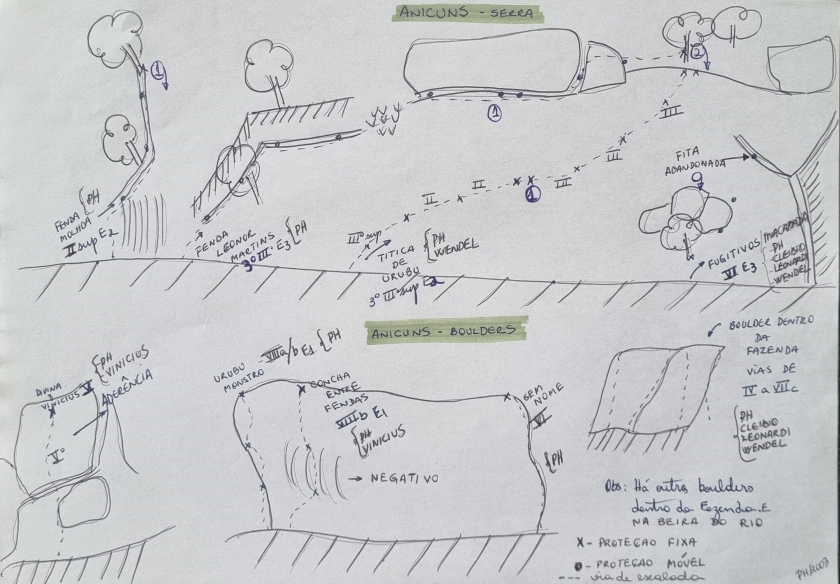 ANICUNS - SERRA
1
2
1
FITA
ABANDONADA
FENDA
MOLHADA
II sup E2
{PH
FENDA
LEONOR
MARTINS
3º III E3
{PH
III
III
III
II
II
1
IIIº sup
TITICA
DE
URUBU
3º III sup E2
{PH
WENDEL
FUGITIVOS
VI E3
INACABADA
PH
CLEIBIO
LEONARDI
WENDEL
ANICUNS - BOULDERS
DIVINA
VINICIUS V
{PH
VINICIUS
ADERÊNCIA
Vº
URUBU
MONSTRO
VIIa/b E1 {PH
CONCHA
ENTRE
FENDAS
VIIIb E1
{PH
VINICIUS
→ NEGATIVO
SEM
NOME
VI
{PH
BOULDER DENTRO
DA
FAZENDA
VIAS DE
IV a VIIc
PH
CLEIBIO
LEONARDI
WENDEL
Obs: Há outros boulders
dentro da Fazenda E
NA BEIRA DO RIO
X - PROTEÇÃO FIXA
● - PROTEÇÃO MÓVEL
--- via de escalada
PH/2003